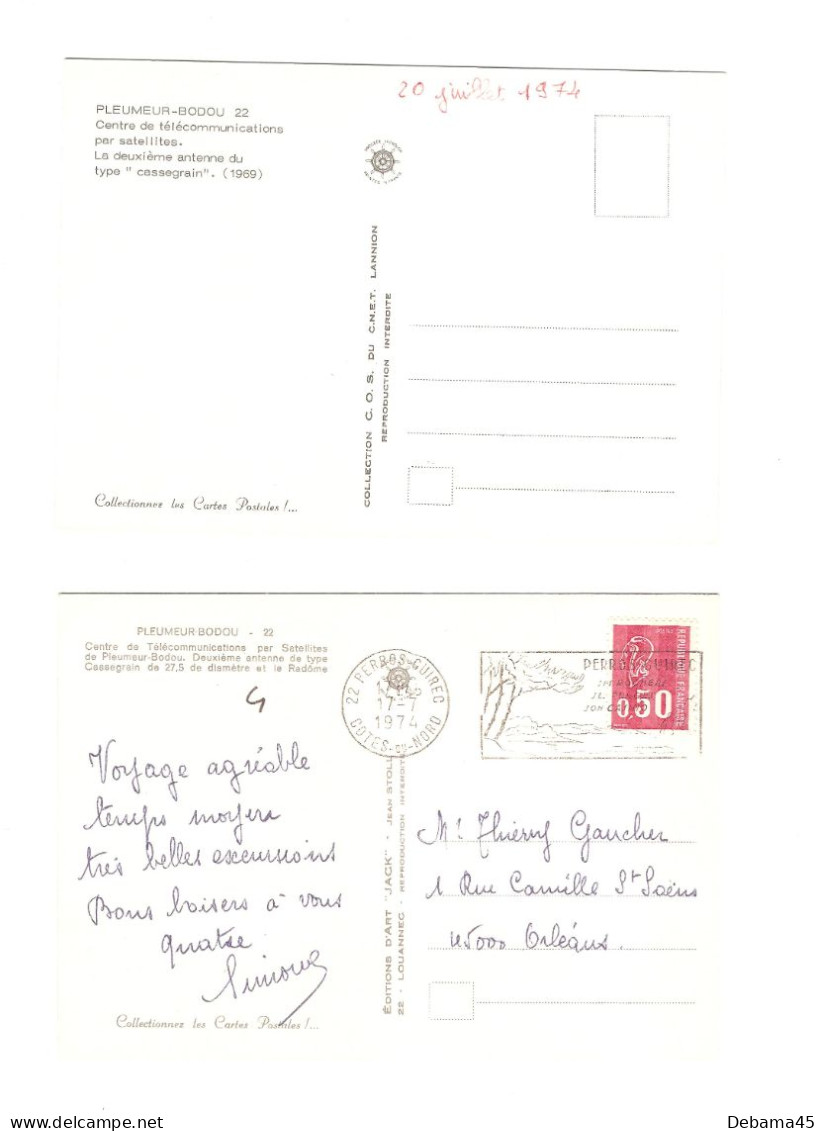 20 juillet 1974
PLEUMEUR-BODOU 22
Centre de télécommunications
par satellites.
La deuxième antenne du
type " cassegrain". (1969)
COLLECTION C.O.S. DU C.N.E.T. LANNION
REPRODUCTION INTERDITE
Collectionnez les Cartes Postales !...
PLEUMEUR-BODOU - 22
Centre de Télécommunications per Satellites
de Pleumeur-Bodou. Deuxième antenne de type
Cassegrain de 27,5 de diamètre et le Radôme
22 PERROS-GUIREC
17-7
1974
COTES-DU-NORD
PERROS-GUIREC
REPUBLIQUE FRANÇAISE
0,50
Voyage agréable
temps moyen
très belles excursions
Bons baisers à vous
quatre
Simone
ÉDITIONS D'ART "JACK" - JEAN STOLL
22 - LOUANNEC - REPRODUCTION INTERDITE
Mr Thierry Gaucher
1 Rue Camille St Saëns
45000 Orléans.
Collectionnez les Cartes Postales !...
Debama45